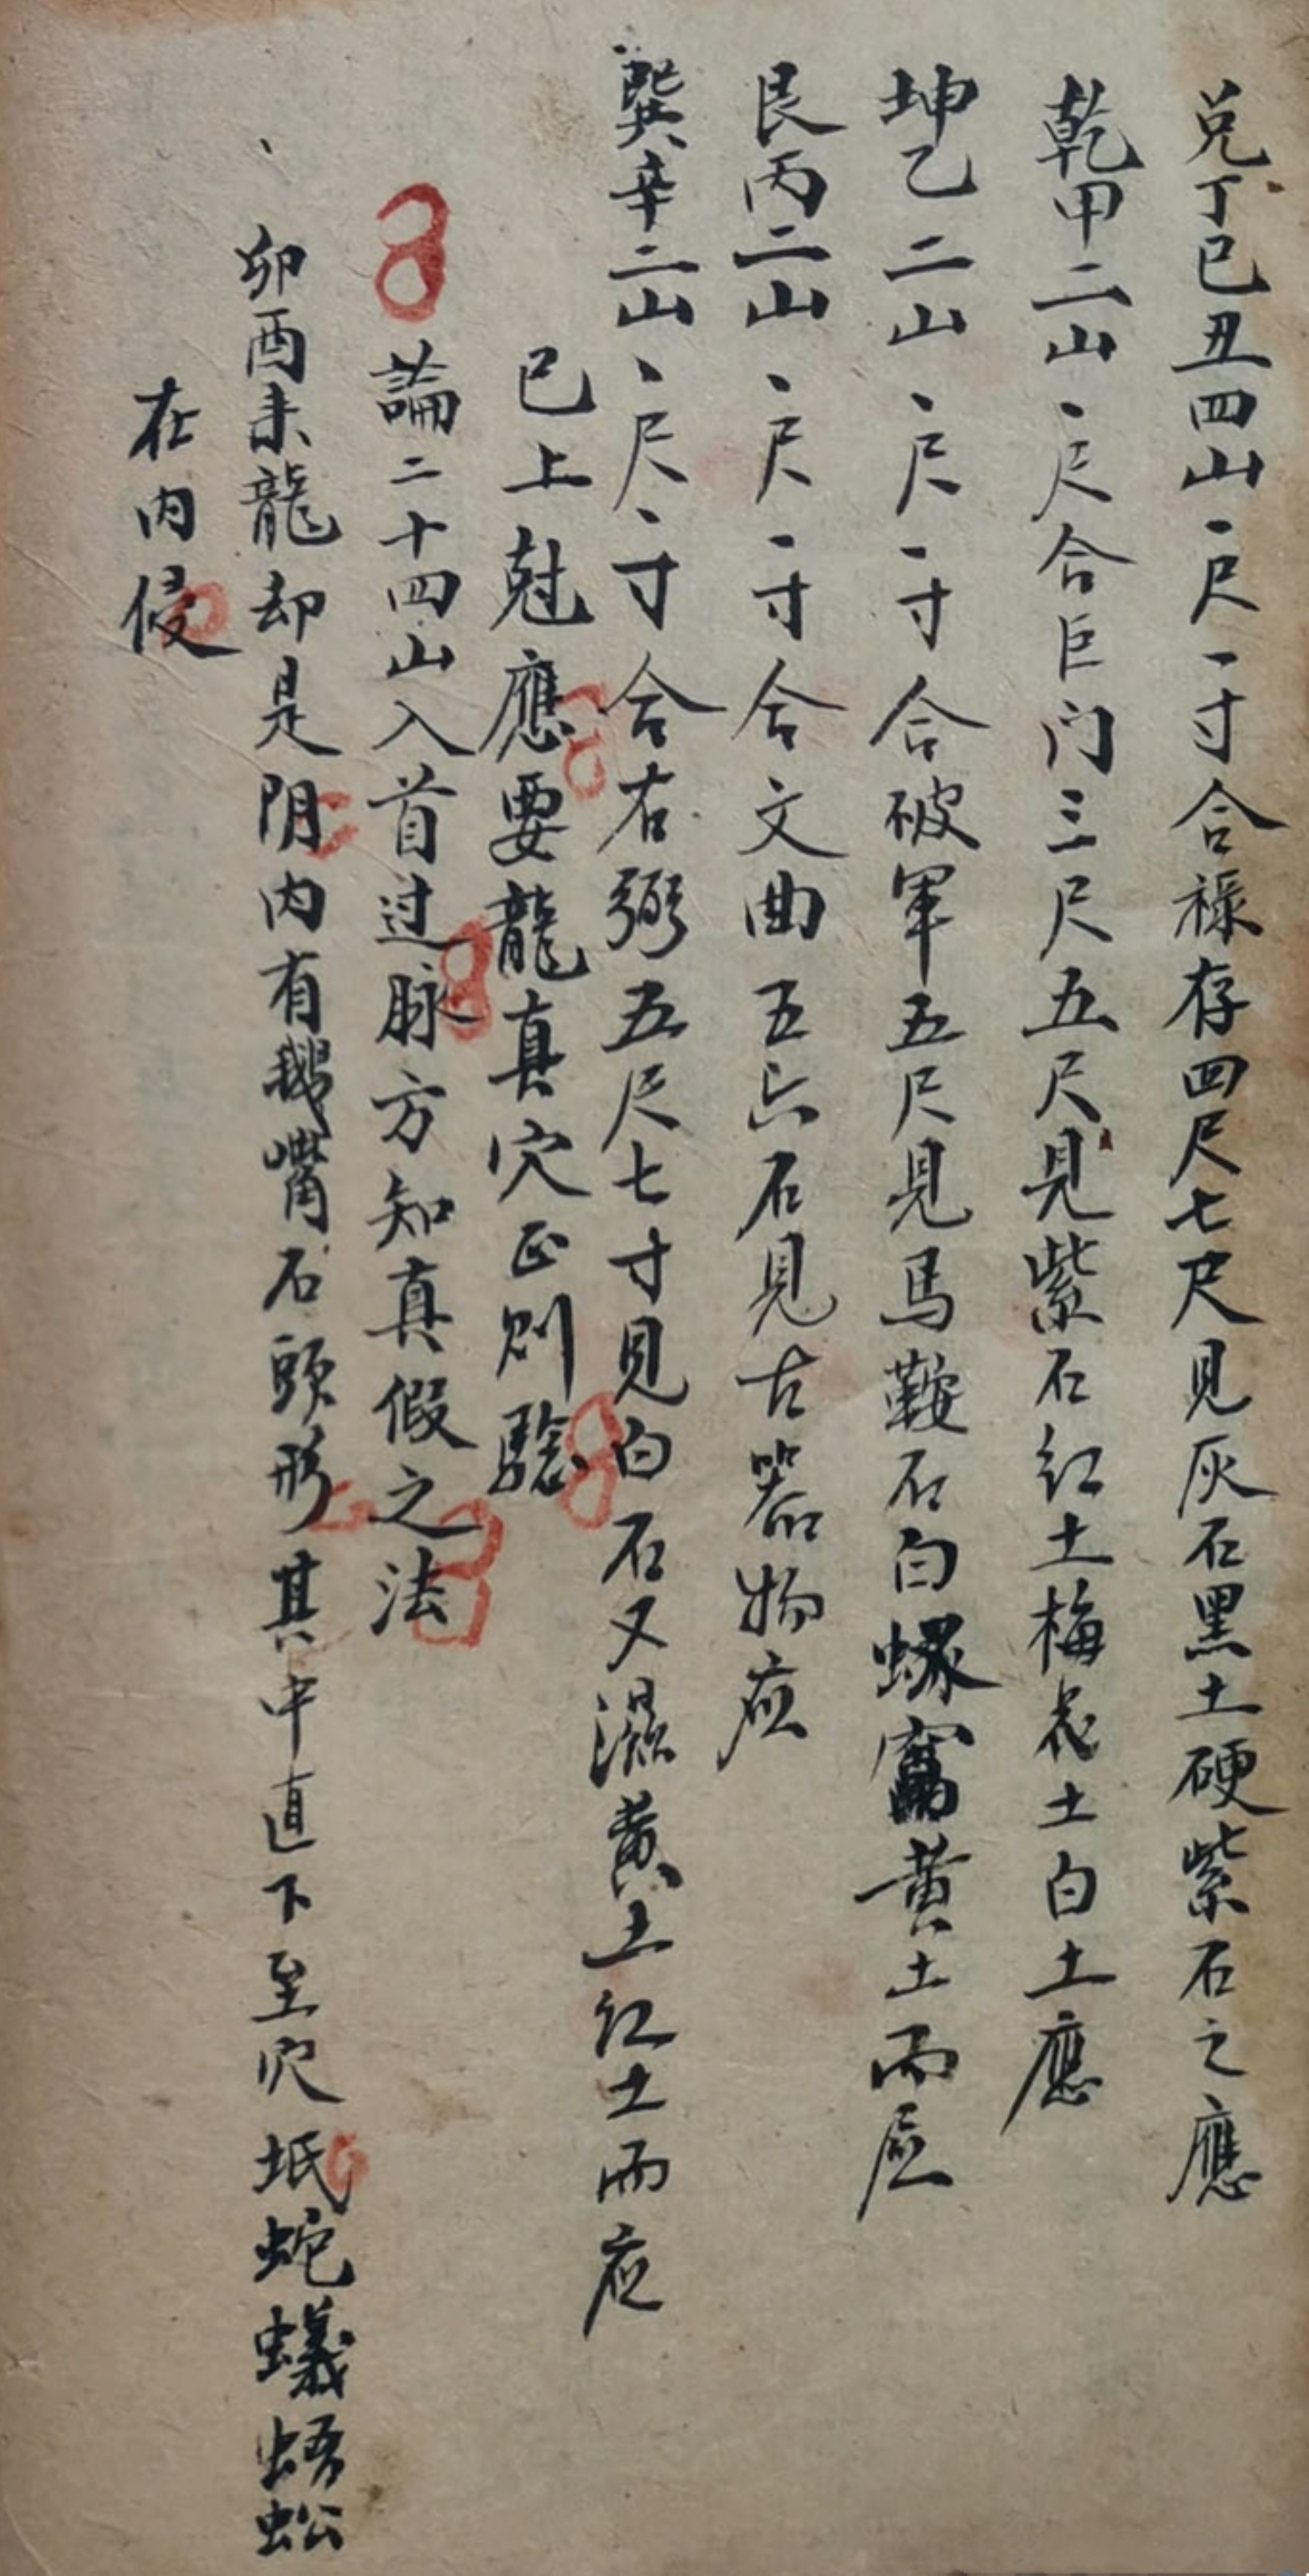 兑丁巳丑四山丶尺一寸合祿存四尺七尺見灰石黑土硬紫石之應
乾甲二山丶尺合巨门三尺五尺見紫石红土梅花土白土應
坤乙二山丶尺一寸合破軍五尺見馬鞍石白螺窩黃土而应
艮丙二山丶尺一寸合文曲五六石見古器物应
巽辛二山丶尺一寸合右弼五尺七寸見白石又濕黄土红土而应
已上尅應要龍真穴正则驗
論二十四山入首过脉方知真假之法
卯酉未龍却是阴内有鵝嘴石頭形其中直下至穴坻蛇蟻蜈蚣
在内侵